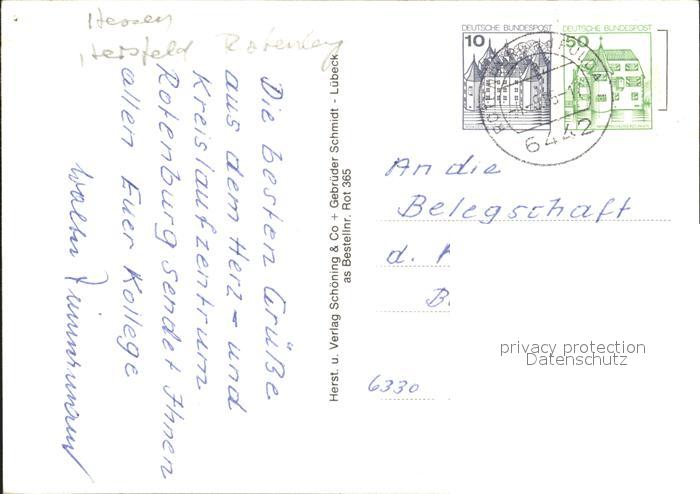 Hessen
Hersfeld Rotenburg
Die besten Grüße
aus dem Herz- und
Kreislaufzentrum
Rotenburg sendet Ihnen
allen Euer Kollege
Walter
Herst. u. Verlag Schöning & Co + Gebrüder Schmidt - Lübeck
as Bestellnr. Rot 365
DEUTSCHE BUNDESPOST
10
DEUTSCHE BUNDESPOST
50
6442
An die
Belegschaft
d.
B.
6330
privacy protection
Datenschutz